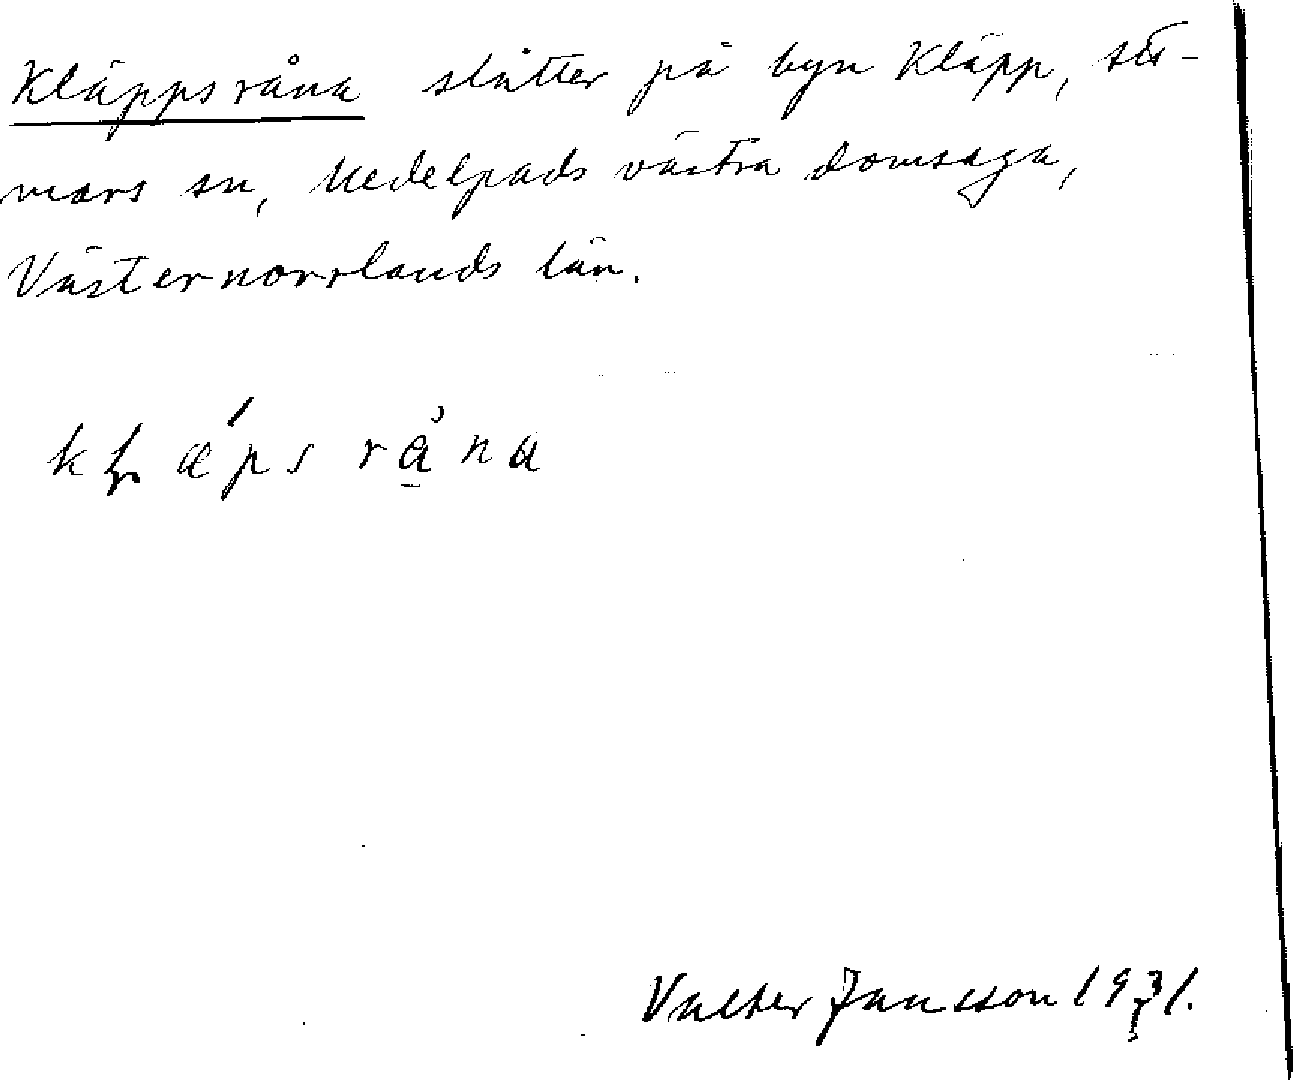 Kläppsråna slåtter på byn Kläpp, Stö-
mars sn, Medelpads västra domsaga,
Västernorrlands län.
kḷǽps rå̀na
Valter Jansson 1931.